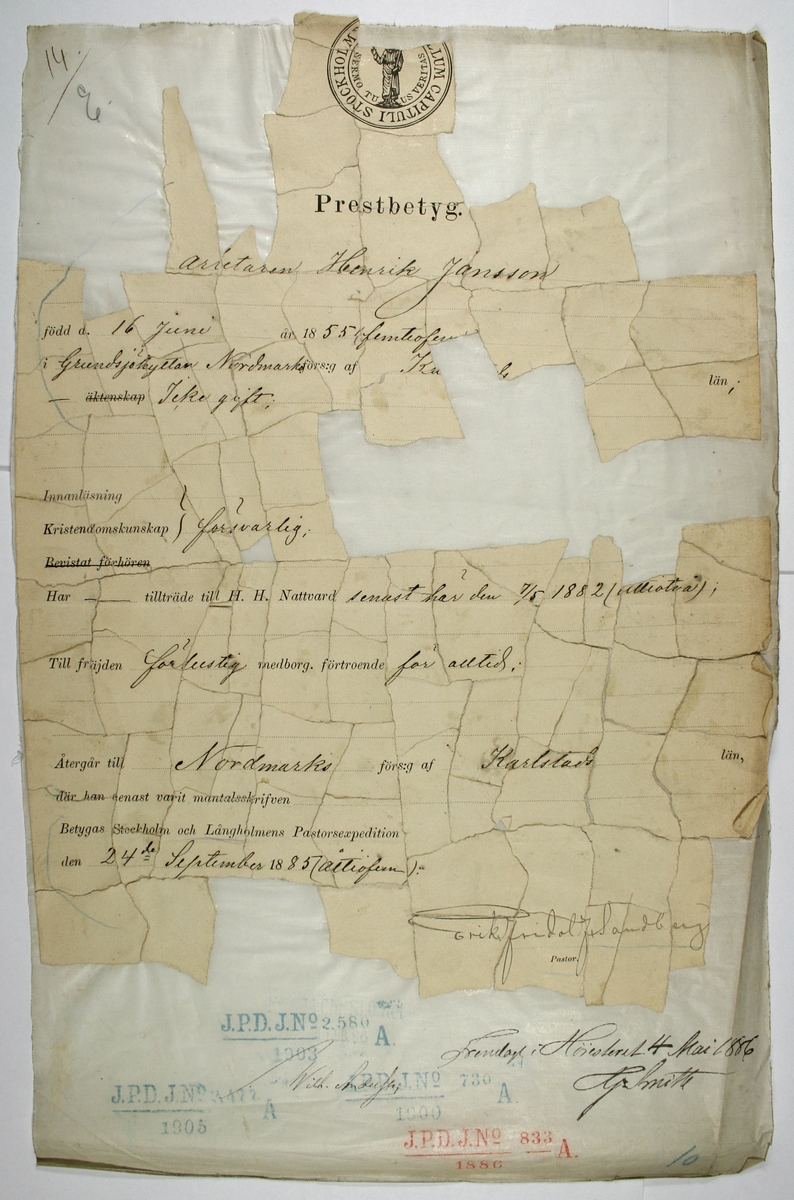 14
SIGILLUM CAPITULI STOCKHOLM
SERMO TUUS VERITAS
Prestbetyg.
Arbetaren Henrik Jansson
född d. 16 Juni år 1855 (femtiofem
i Grundsjöhyttan Nordmarks förs:g af län;
— äktenskap Icke gift;
Innanläsning
Kristendomskunskap } försvarlig;
Bevistat förhören
Har — tillträde till H. H. Nattvard senast här den 7/5 1882 (åttiotvå);
Till fräjden förlustig medborg. förtroende för alltid;
Återgår till Nordmarks förs:g af Karlstads län,
där han senast varit mantalsskrifven
Betygas Stockholm och Långholmens Pastorsexpedition
den 24de September 1885 (åttiofem):
Erik Fridolf Sandberg
Pastor.
J.P.D.J.No 2,580 A.
1903
Fremlagt i Høiesteret 4 Mai 1886
Smith
J.P.D.J.No A
1905
J.P.D.J.No 730 A.
1900
J.P.D.J.No 833 A.
1886
10